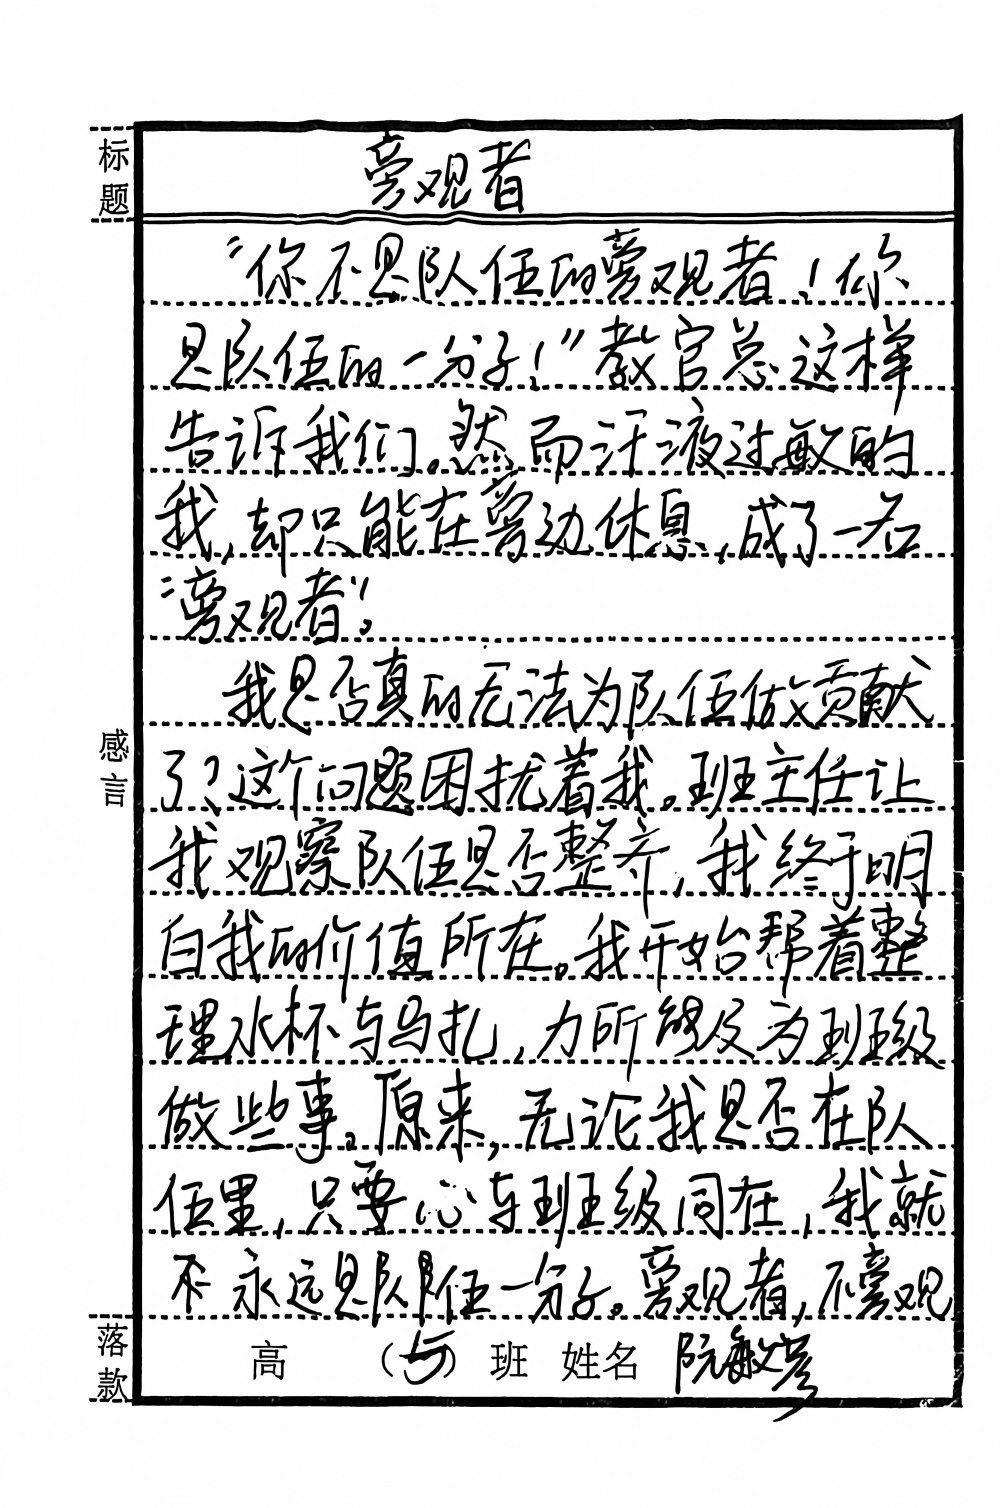 标题
旁观者
“你不是队伍的旁观者！你
是队伍的一分子！”教官总这样
告诉我们。然而汗液过敏的
我，却只能在旁边休息，成了一名
“旁观者”。
我是否真的无法为队伍做贡献
了？这个问题困扰着我。班主任让
我观察队伍是否整齐，我终于明
白我的价值所在。我开始帮着整
理水杯与马扎，力所能及为班级
做些事。原来，无论我是否在队
伍里，只要心与班级同在，我就
永远是队伍一分子。旁观者，不旁观
感言
落款
高 （5）班 姓名 阮敏彦